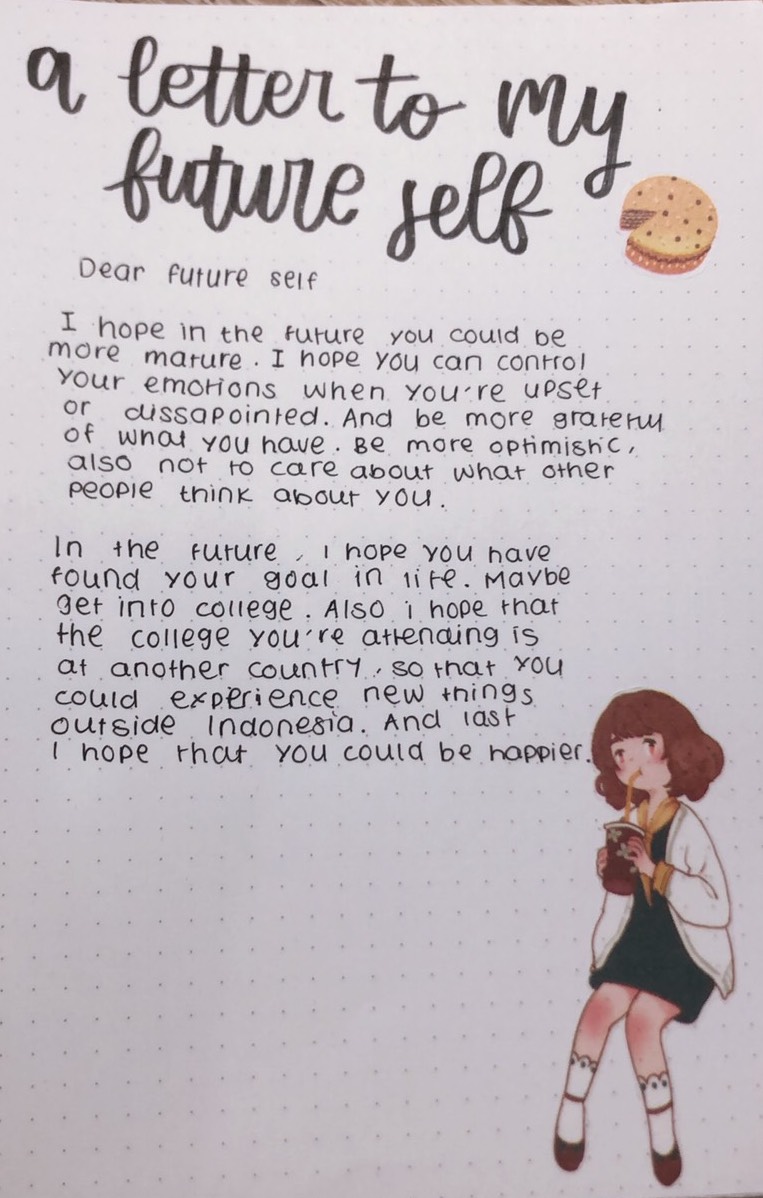 a letter to my
future self
Dear future self
I hope in the future you could be
more mature. I hope you can control
your emotions when you're upset
or dissapointed. And be more grateful
of what you have. Be more optimistic,
also not to care about what other
people think about you.
In the future, I hope you have
found your goal in life. Maybe
get into college. Also i hope that
the college you're attending is
at another country, so that you
could experience new things
outside Indonesia. And last
I hope that you could be happier.